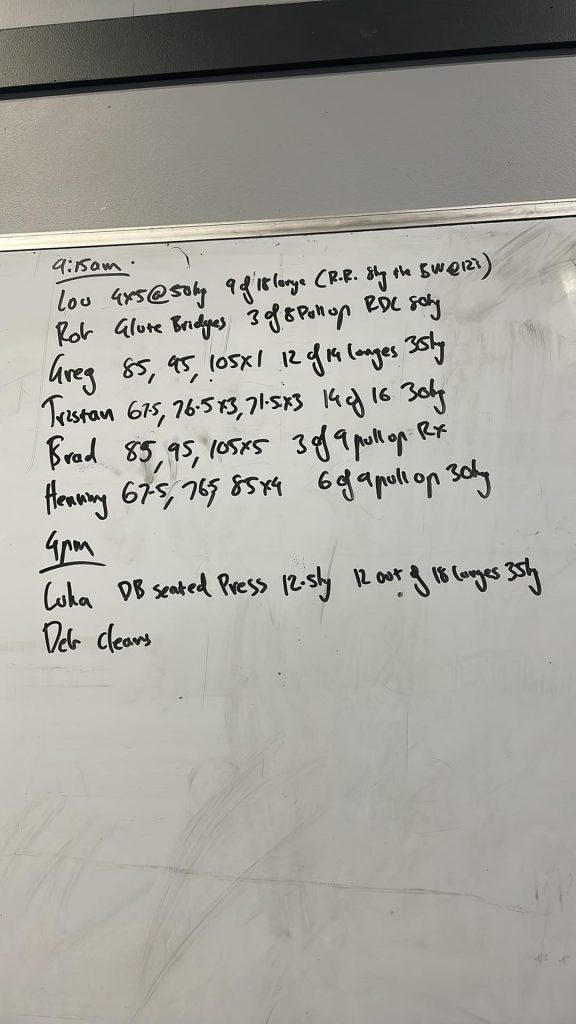 9:15am
Lou 4x5@50kg 9 of 18 lunge (R.R. 8kg the BW@12)
Rob Glute Bridges 3 of 8 Pull up RDL 80kg
Greg 85, 95, 105x1 12 of 14 lunges 35kg
Tristan 67.5, 76.5x3, 71.5x3 14 of 16 30kg
Brad 85, 95, 105x5 3 of 9 pull up Rx
Henning 67.5, 765 85x4 6 of 9 pull up 30kg
4pm
Luka DB seated Press 12.5kg 12 out of 18 lunges 35kg
Deb cleans